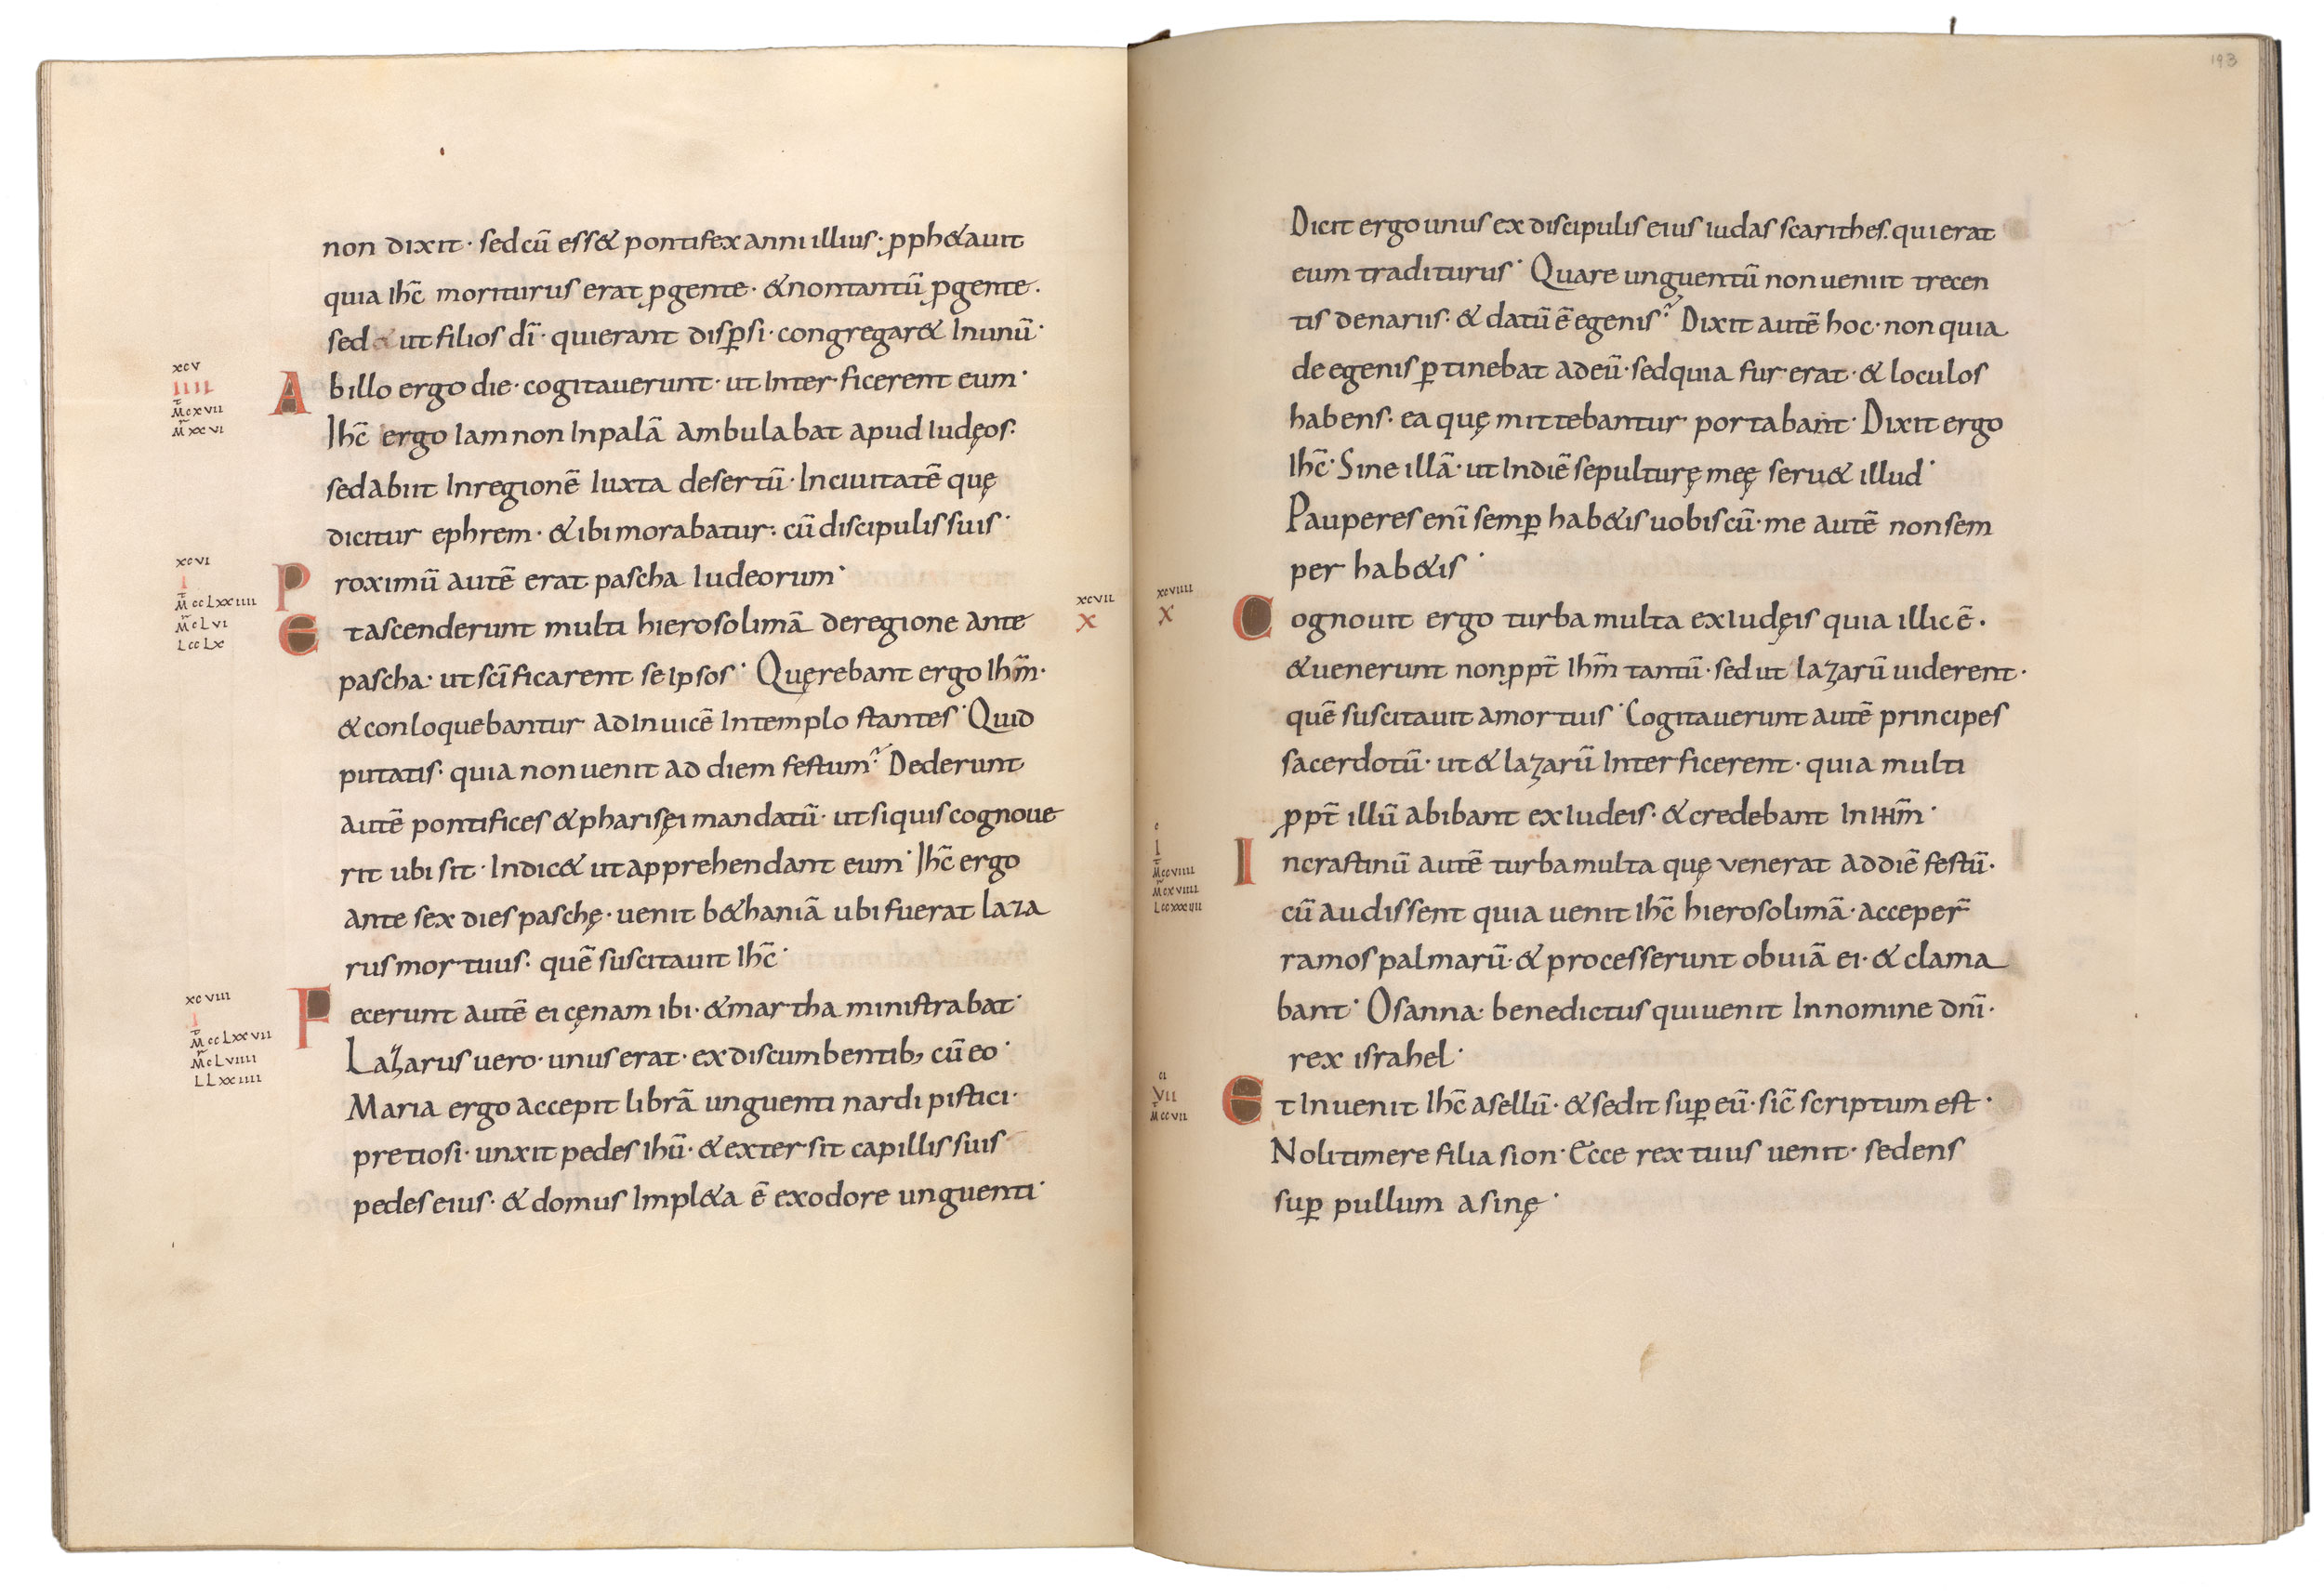 non dixit· sed cū ess& pontifex anni illius· ꝓph&auit
quia Ihc̄ moriturus erat ꝓ gente· & non tantū ꝓ gente·
sed & ut filios dī· qui erant disꝑsi· congregar& In unū·
xcv
IIII
M̄ cxvii
M̄ xxvi
Ab illo ergo die· cogitauerunt· ut Interficerent eum·
Ihc̄ ergo Iam non In palā ambulabat apud Iudęos·
sed abiit In regionē Iuxta desertū· In ciuitatē quę
dicitur ephrem· & ibi morabatur· cū discipulis suis·
xcvi
I
M̄ ccLxxiiii
M̄ cLvi
LccLx
Proximū autē erat pascha Iudeorum·
xcvii
x
Et ascenderunt multi hierosolimā de regione ante
pascha· ut scīficarent se Ipsos· Quęrebant ergo Ihm̄·
& conloquebantur ad Inuicē In templo stantes· Quid
putatis· quia non uenit ad diem festum? Dederunt
autē pontifices & pharisęi mandatū· ut si quis cognoue
rit ubi sit· Indic& ut apprehendant eum· Ihc̄ ergo
ante sex dies paschę· uenit b&haniā ubi fuerat laza
rus mortuus· quē suscitauit Ihc̄·
xcviii
I
M̄ ccLxxvii
M̄ cLviiii
LLxxiiii
Fecerunt autē ei cęnam ibi· & martha ministrabat·
Lazarus uero· unus erat· ex discumbentib; cū eo·
Maria ergo accepit librā unguenti nardi pistici·
pretiosi· unxit pedes Ihū· & extersit capillis suis
pedes eius· & domus Impl&a ē ex odore unguenti·
193
Dicit ergo unus ex discipulis eius iudas scarithes· qui erat
eum traditurus· Quare unguentū non ueniit trecen
tis denariis· & datū ē egenis? Dixit autē hoc· non quia
de egenis ꝑtinebat ad eū· sed quia fur erat· & loculos
habens· ea quę mittebantur portabant· Dixit ergo
Ihc̄· Sine illā· ut In diē sepulturę meę seru& illud·
Pauperes enī semꝑ hab&is uobiscū· me autē non sem
per hab&is·
xcviiii
x
Cognouit ergo turba multa ex Iudęis quia illic ē·
& uenerunt non ꝓpt̄ Ihm̄ tantū· sed ut lazarū uiderent·
quē suscitauit a mortuis· Cogitauerunt autē principes
sacerdotū· ut & lazarū Interficerent· quia multi
ꝓpt̄ illū abibant ex Iudeis· & credebant In Ihm̄·
c
I
M̄ ccviiii
M̄ cxviiii
Lccxxxiiii
In crastinū autē turba multa quę venerat ad diē festū·
cū audissent quia uenit Ihc̄ hierosolimā· acceper̄
ramos palmarū· & processerunt obuiā ei· & clama
bant· Osanna· benedictus qui uenit In nomine dn̄i·
rex israhel·
ci
VII
M̄ ccvii
Et Inuenit Ihc̄ asellū· & sedit suꝑ eū· sic̄ scriptum est·
Noli timere filia sion· Ecce rex tuus uenit· sedens
suꝑ pullum asinę·